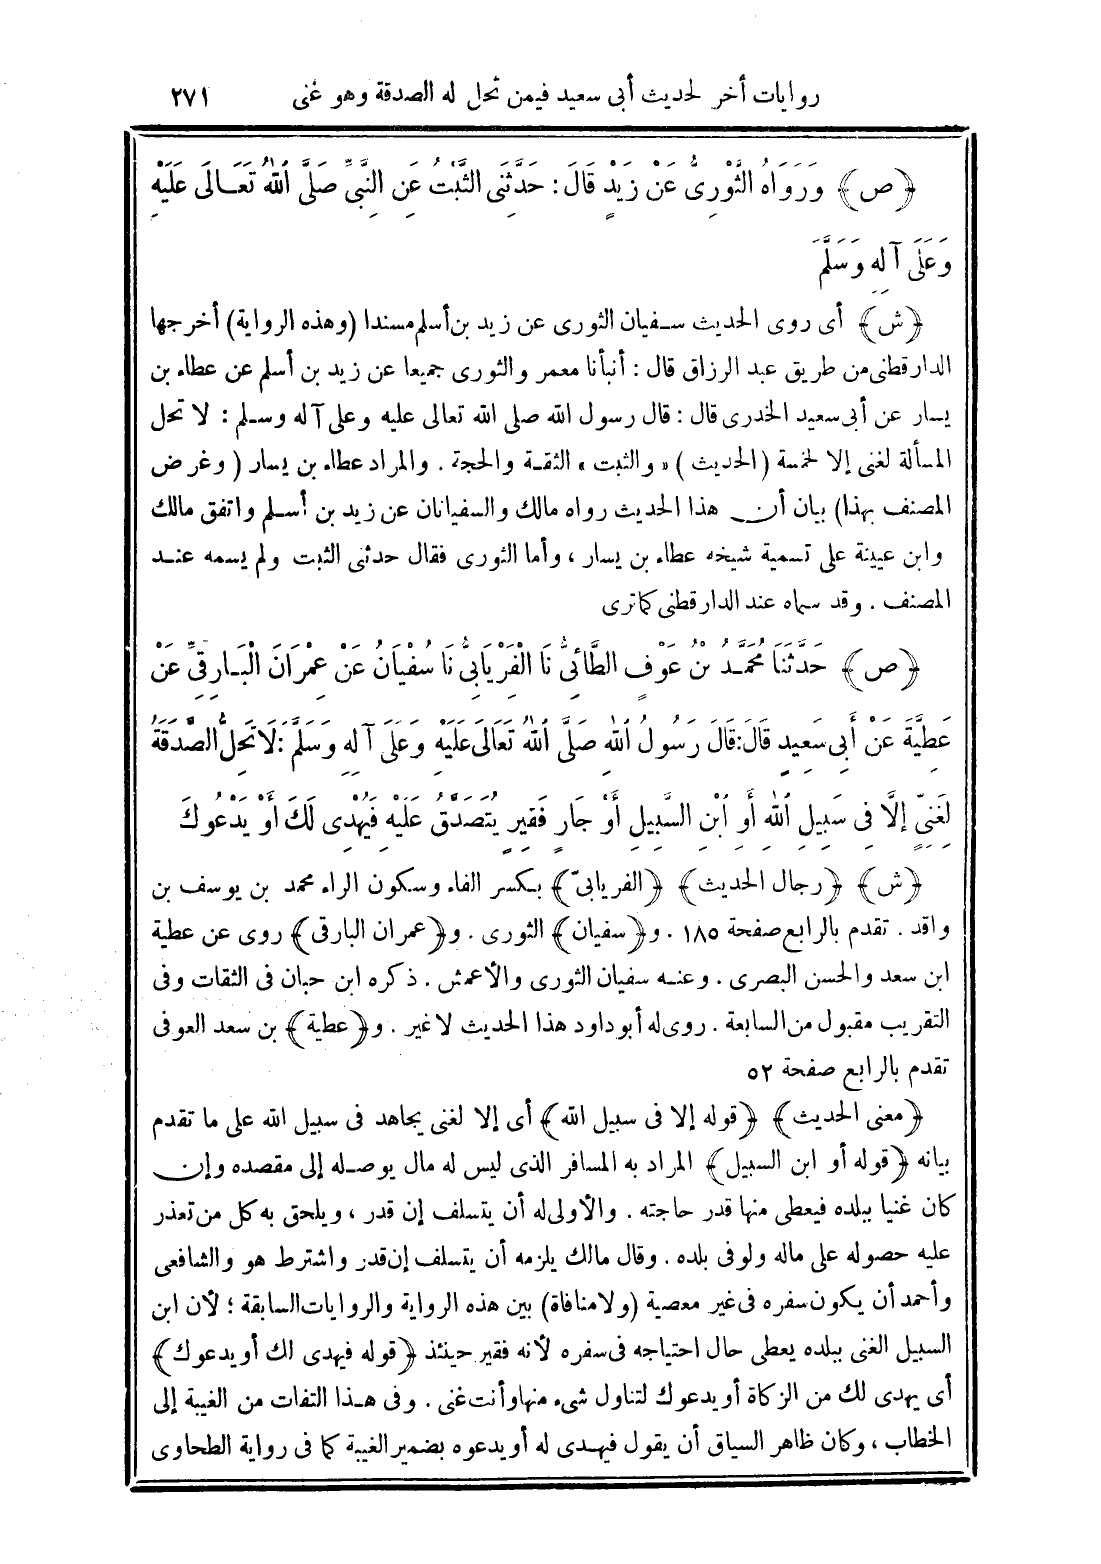 روايات أخر لحديث أبى سعيد فيمن تحل له الصدقة وهو غنى ٢٧١
﴿ص﴾ وَرَوَاهُ الثَّوْرِىُّ عَنْ زَيْدٍ قَالَ: حَدَّثَنِى الثَّبْتُ عَنِ النَّبِىِّ صَلَّى اللهُ تَعَالَى عَلَيْهِ
وَعَلَى آلِهِ وَسَلَّمَ
﴿ش﴾ أى روى الحديث سفيان الثورى عن زيد بن أسلم مسندا (وهذه الرواية) أخرجها
الدارقطنى من طريق عبد الرزاق قال: أنبأنا معمر والثورى جميعا عن زيد بن أسلم عن عطاء بن
يسار عن أبى سعيد الخدرى قال: قال رسول الله صلى الله تعالى عليه وعلى آله وسلم: لا تحل
المسألة لغنى إلا لخمسة (الحديث) «والثبت» الثقة والحجة. والمراد عطاء بن يسار (وغرض
المصنف بهذا) بيان أن هذا الحديث رواه مالك والسفيانان عن زيد بن أسلم واتفق مالك
وابن عيينة على تسمية شيخه عطاء بن يسار، وأما الثورى فقال حدثنى الثبت ولم يسمه عند
المصنف. وقد سماه عند الدارقطنى كما ترى
﴿ص﴾ حَدَّثَنَا مُحَمَّدُ بْنُ عَوْفٍ الطَّائِىُّ نَا الْفِرْيَابِىُّ نَا سُفْيَانُ عَنْ عِمْرَانَ الْبَارِقِىِّ عَنْ
عَطِيَّةَ عَنْ أَبِى سَعِيدٍ قَالَ: قَالَ رَسُولُ اللهِ صَلَّى اللهُ تَعَالَى عَلَيْهِ وَعَلَى آلِهِ وَسَلَّمَ: لَا تَحِلُّ الصَّدَقَةُ
لِغَنِىٍّ إِلَّا فِى سَبِيلِ اللهِ أَوِ ابْنِ السَّبِيلِ أَوْ جَارٍ فَقِيرٍ يُتَصَدَّقُ عَلَيْهِ فَيُهْدِى لَكَ أَوْ يَدْعُوكَ
﴿ش﴾ ﴿رجال الحديث﴾ ﴿الفريابىّ﴾ بكسر الفاء وسكون الراء محمد بن يوسف بن
واقد. تقدم بالرابع صفحة ١٨٥. و﴿سفيان﴾ الثورى. و﴿عمران البارقى﴾ روى عن عطية
ابن سعد والحسن البصرى. وعنه سفيان الثورى والأعمش. ذكره ابن حبان فى الثقات وفى
التقريب مقبول من السابعة. روى له أبو داود هذا الحديث لاغير. و﴿عطية﴾ بن سعد العوفى
تقدم بالرابع صفحة ٥٢
﴿معنى الحديث﴾ ﴿قوله إلا فى سبيل الله﴾ أى إلا لغنى يجاهد فى سبيل الله على ما تقدم
بيانه ﴿قوله أو ابن السبيل﴾ المراد به المسافر الذى ليس له مال يوصله إلى مقصده وإن
كان غنيا ببلده فيعطى منها قدر حاجته. والأولى له أن يتسلف إن قدر، ويلحق به كل من تعذر
عليه حصوله على ماله ولو فى بلده. وقال مالك يلزمه أن يتسلف إن قدر واشترط هو والشافعى
وأحمد أن يكون سفره فى غير معصية (ولا منافاة) بين هذه الرواية والروايات السابقة؛ لأن ابن
السبيل الغنى ببلده يعطى حال احتياجه فى سفره لأنه فقير حينئذ ﴿قوله فيهدى لك أو يدعوك﴾
أى يهدى لك من الزكاة أو يدعوك لتناول شىء منها وأنت غنى. وفى هذا التفات من الغيبة إلى
الخطاب، وكان ظاهر السياق أن يقول فيهدى له أو يدعوه بضمير الغيبة كما فى رواية الطحاوى